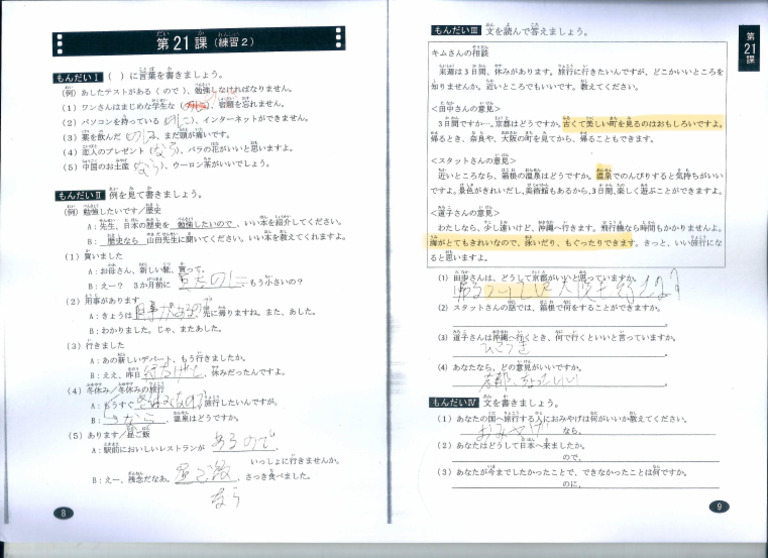 第21課（練習2）
もんだいⅠ （ ）に言葉を書きましょう。
（例）あしたテストがある（ので）、勉強しなければなりません。
（1）ワンさんはまじめな学生な（ ）、宿題を忘れません。
（2）パソコンを持っている（のに）、インターネットができません。
（3）薬を飲んだ（のに）、まだ頭が痛いです。
（4）恋人のプレゼント（なら）、バラの花がいいと思いますよ。
（5）中国のお土産（なら）、ウーロン茶がいいでしょう。
もんだいⅡ 例を見て書きましょう。
（例）勉強したいです／歴史
A：先生、日本の歴史を 勉強したいので、いい本を紹介してください。
B： 歴史なら 山田先生に聞いてください。いい本を教えてくれますよ。
（1）買いました
A：お母さん、新しい靴、買って。
B：えー？ 3か月前に のに もう小さいの？
（2）用事があります
A：きょうは 用事があるので 先に帰りますね。また、あした。
B：わかりました。じゃ、またあした。
（3）行きました
A：あの新しいデパート、もう行きましたか。
B：ええ、昨日 休みだったんですよ。
（4）冬休み／冬休みの旅行
A：もうすぐ 冬休みなので 旅行したいんですが。
B： なら 温泉はどうですか。
（5）あります／昼ご飯
A：駅前においしいレストランが あるので、
いっしょに行きませんか。
B：えー、残念だなあ。昼ご飯 、さっき食べました。
なら
8
もんだいⅢ 文を読んで答えましょう。
キムさんの相談
来週は3日間、休みがあります。旅行に行きたいんですが、どこかいいところを
知りませんか。近いところでもいいです。教えてください。
＜田中さんの意見＞
3日間ですか…。京都はどうですか。古くて美しい町を見るのはおもしろいですよ。
帰るとき、奈良や、大阪の町を見てから、帰ることもできます。
＜スタットさんの意見＞
近いところなら、箱根の温泉はどうですか。温泉でのんびりすると気持ちがいい
ですよ。景色がきれいだし、美術館もあるから、3日間、楽しく遊ぶことができますよ。
＜道子さんの意見＞
わたしなら、少し遠いけど、沖縄へ行きます。飛行機なら時間もかかりませんよ。
海がとてもきれいなので、泳いだり、もぐったりできます。きっと、いい旅行にな
ると思いますよ。
（1）田中さんは、どうして京都がいいと思っていますか。
（2）スタットさんの話では、箱根で何をすることができますか。
（3）道子さんは沖縄へ行くとき、何で行くといいと言っていますか。
ひこうき
（4）あなたなら、どの意見がいいですか。
京都、ちょっといい
もんだいⅣ 文を書きましょう。
（1）あなたの国へ旅行する人におみやげは何がいいか教えてください。
おみやげ なら、
（2）あなたはどうして日本へ来ましたか。
ので、
（3）あなたが今までしたかったことで、できなかったことは何ですか。
のに、
9
第21課